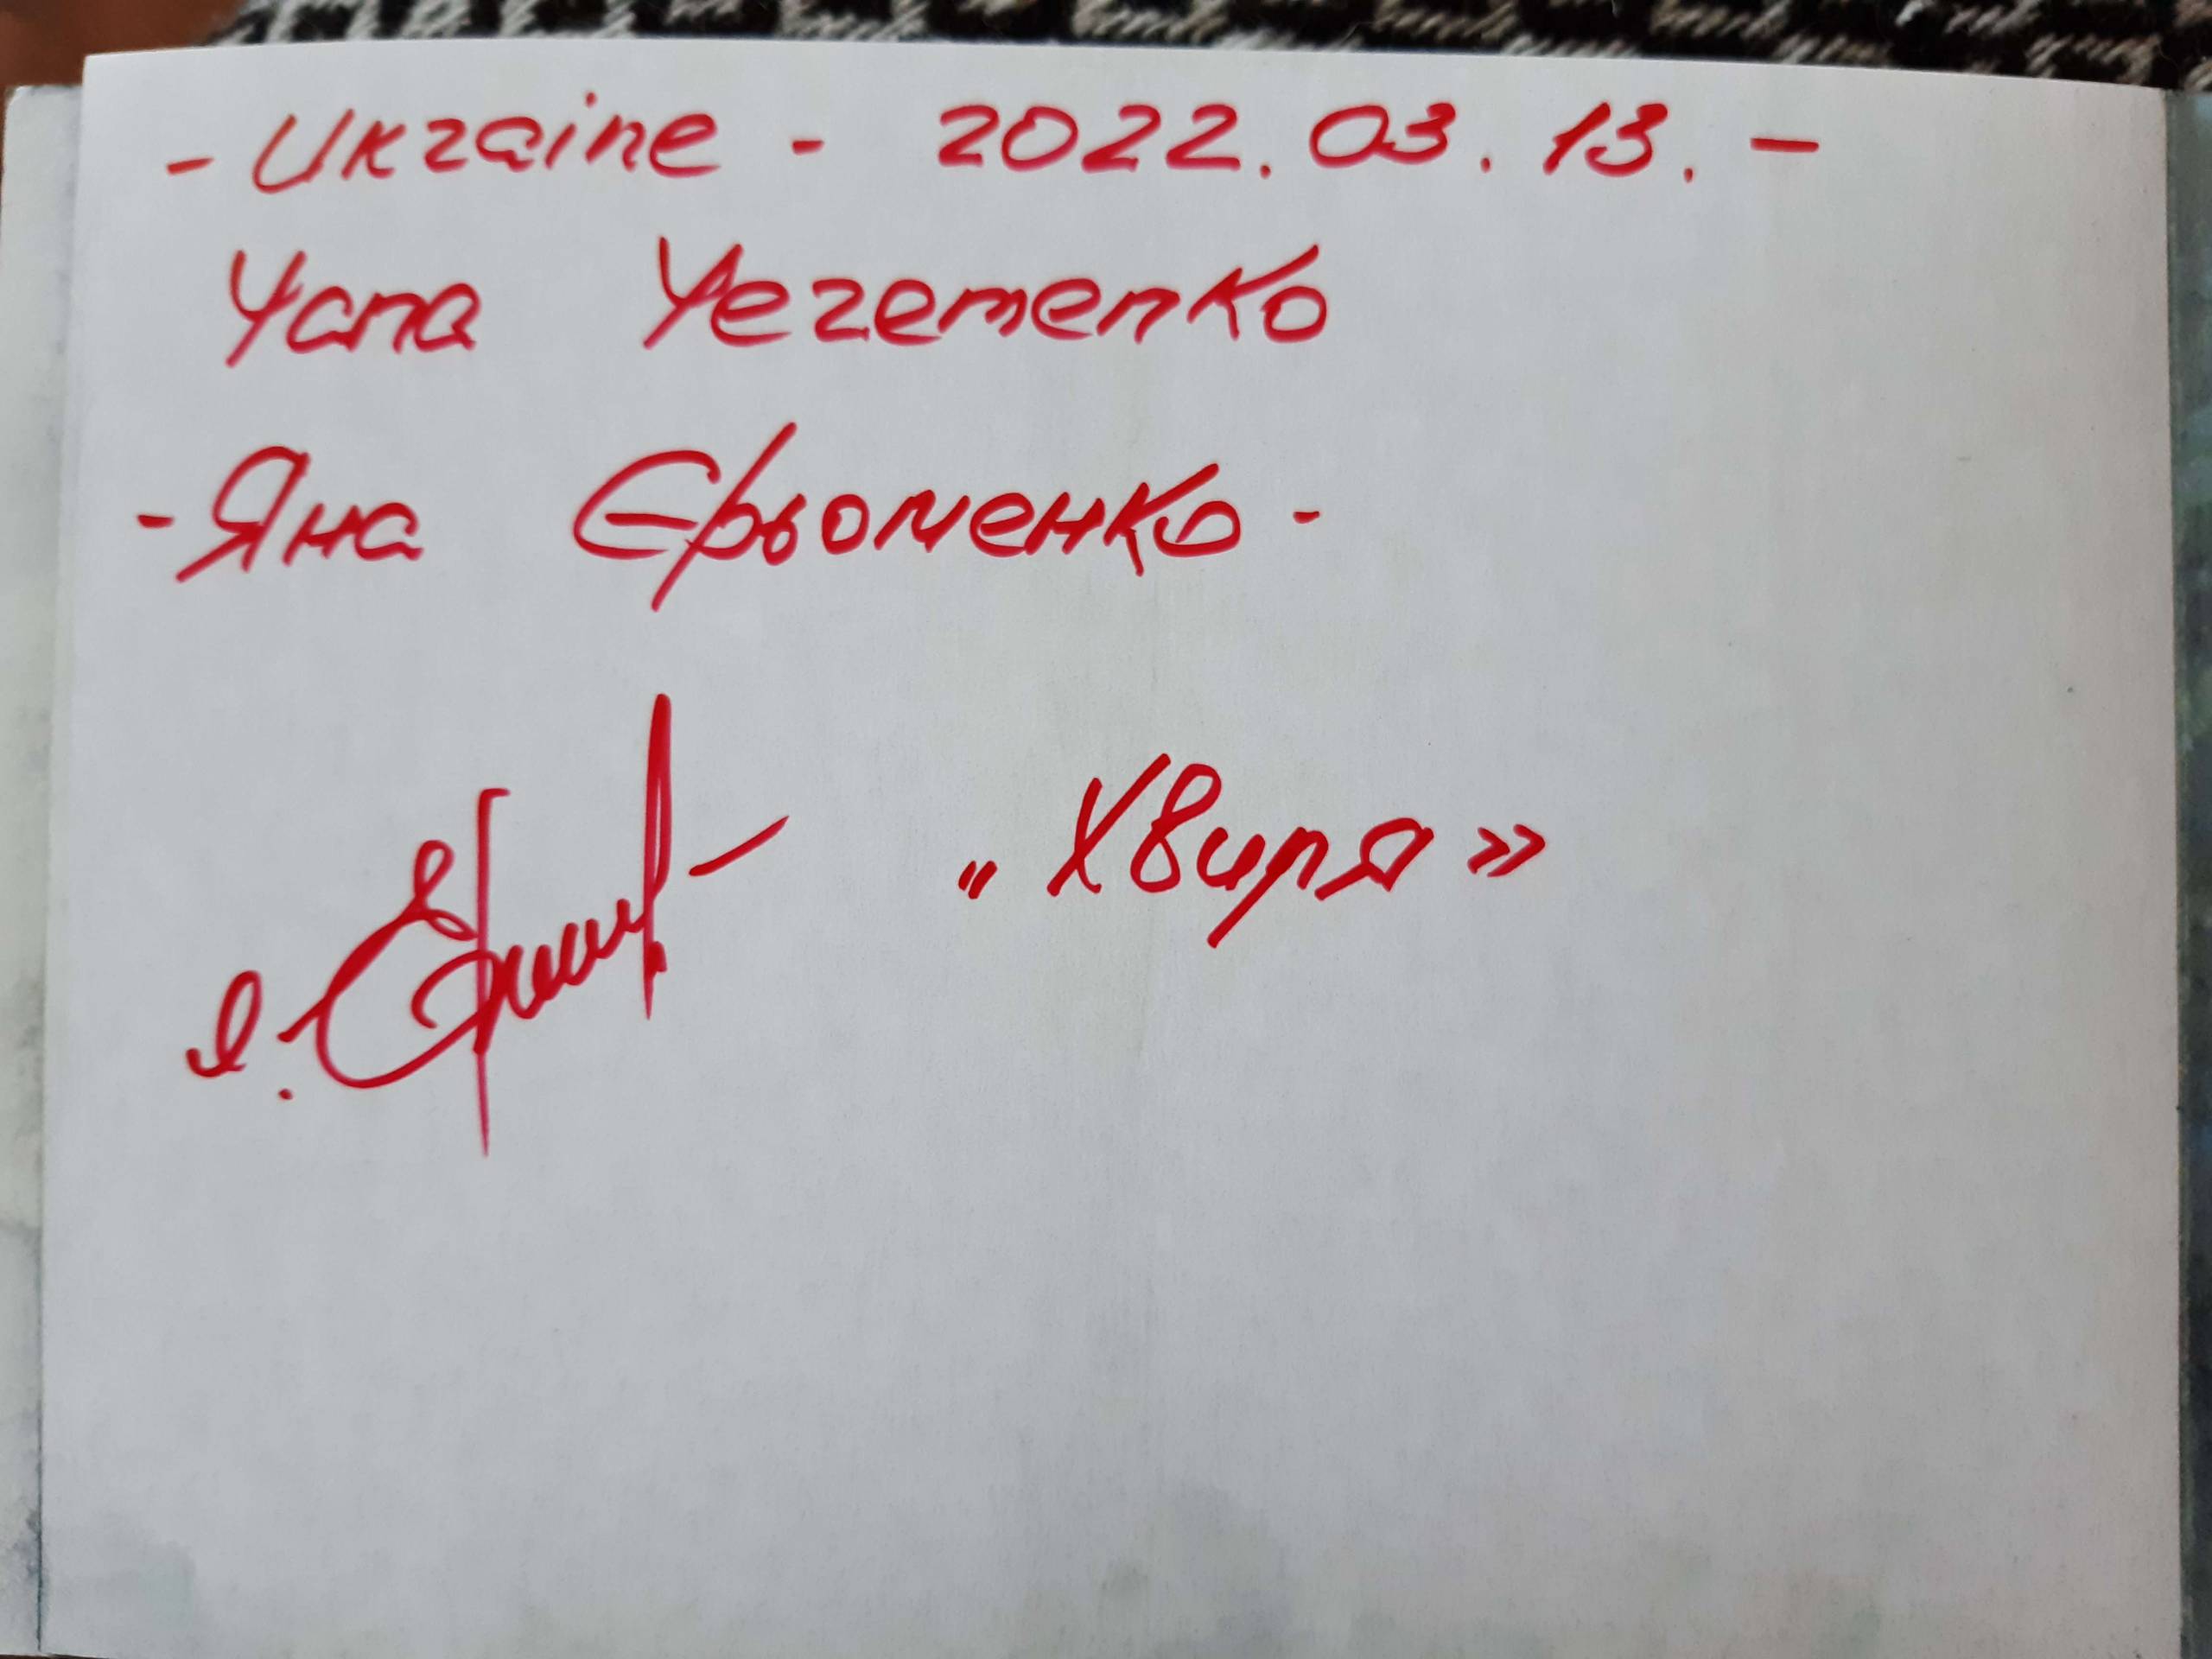 - Ukraine - 2022.03.13. -
Yana Yeremenko
- Яна Єрьоменко -
„Хвиря»